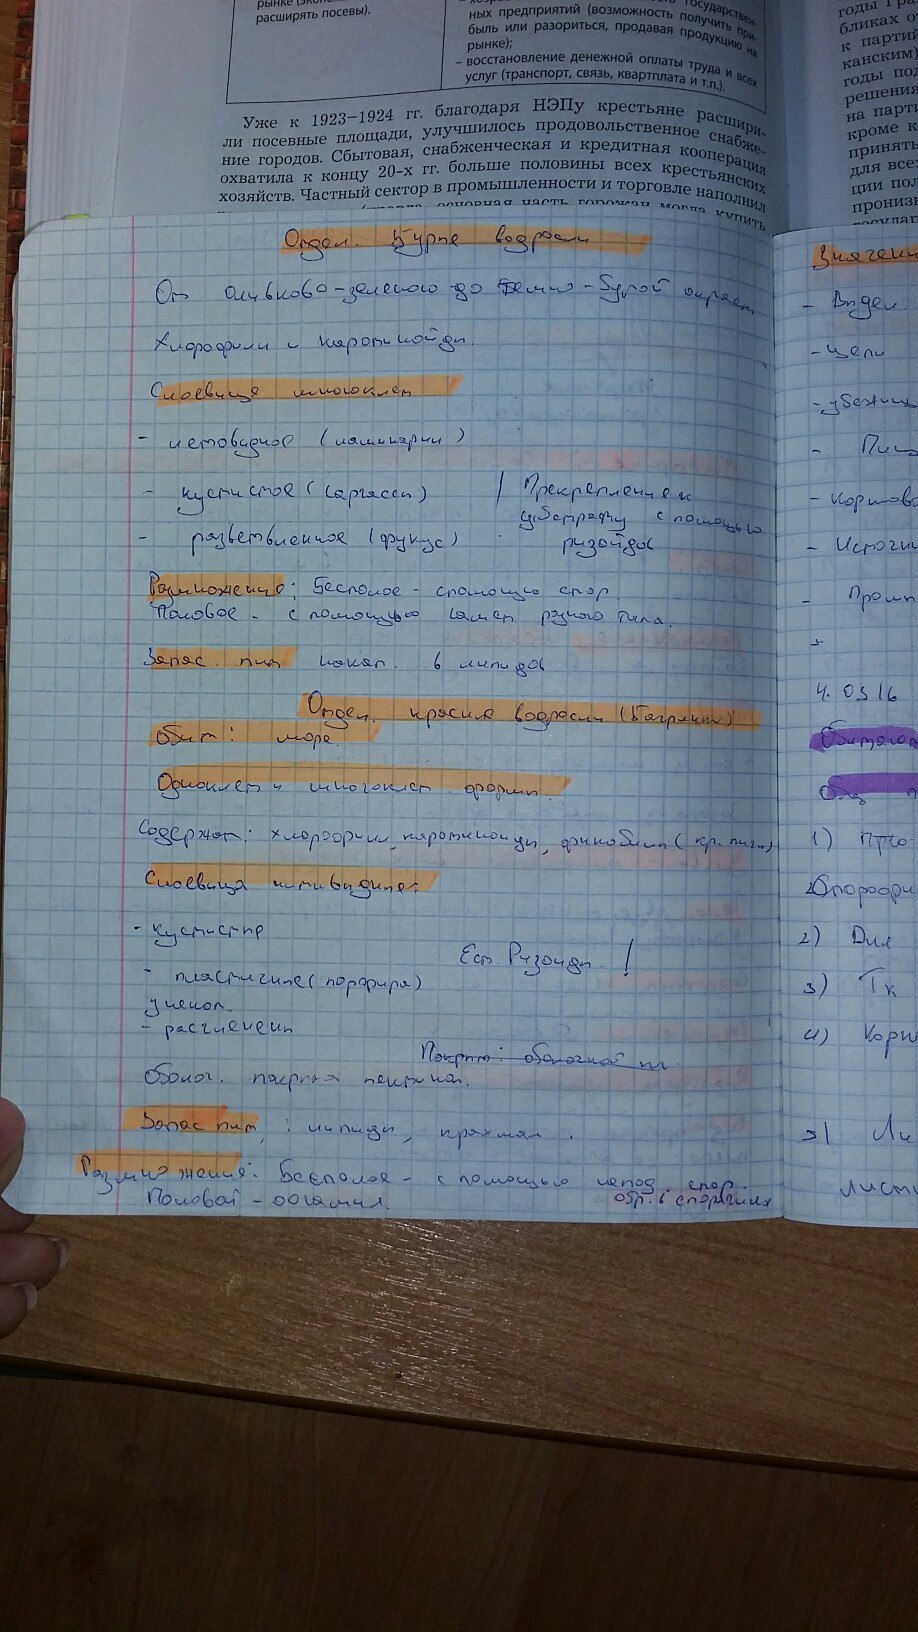 рынке (эконо
расширять посевы).
ных предприятий (возможность получить при-
быль или разориться, продавая продукцию на
рынке);
– восстановление денежной оплаты труда и всех
услуг (транспорт, связь, квартплата и т.п.).
Уже к 1923–1924 гг. благодаря НЭПу крестьяне расшири-
ли посевные площади, улучшилось продовольственное снабже-
ние городов. Сбытовая, снабженческая и кредитная кооперация
охватила к концу 20-х гг. больше половины всех крестьянских
хозяйств. Частный сектор в промышленности и торговле наполнил
основная часть горожан могла купить
годы
бликах
к партий
канским)
годы под
решения
на парти
кроме к
принять
для все
ции пол
прониз
государ
Отдел. Бурые водросли
От оливково-зеленого до темно-бурой окраст
Хлорофилы и каротинойды
Слоевище многоклет
- истовидное (ламинарии)
- кустистое (саргассы)
- разветвленное (фукус)
Прекрепление к
субстрату с помощью
ризойдов
Размножение: Бесполое - спомощью спор.
Половое - с помощью гамет разного типа.
Запас. пит накап. в липидов
Отдел. красные водросли (Багрянки)
Обит: море.
Одноклет и многоклет. формы.
Содержат: хлорофилл, каротиноиды, фикобилин (кр. пигм)
Слоевища нитивидные.
- кустистые
- пластичные (порфира)
- расчленен
Ест. Ризоиды. !
Покрыт: оболочкой пл.
Оболог. покрыта пектинам.
Запас пит, : липиды, крахмал.
Размножения: Бесполое - с помощью непод. спор.
обр. в спорагиях
Половой - оогамия.
Значени
- Водел.
- цепи
- убежищ
- Пищ
- кормова
- Источни
- Пром
4. 03 16
Обитают
1) Пр
2) Для
3) Тк
4) Корне
5) Ли
Листь